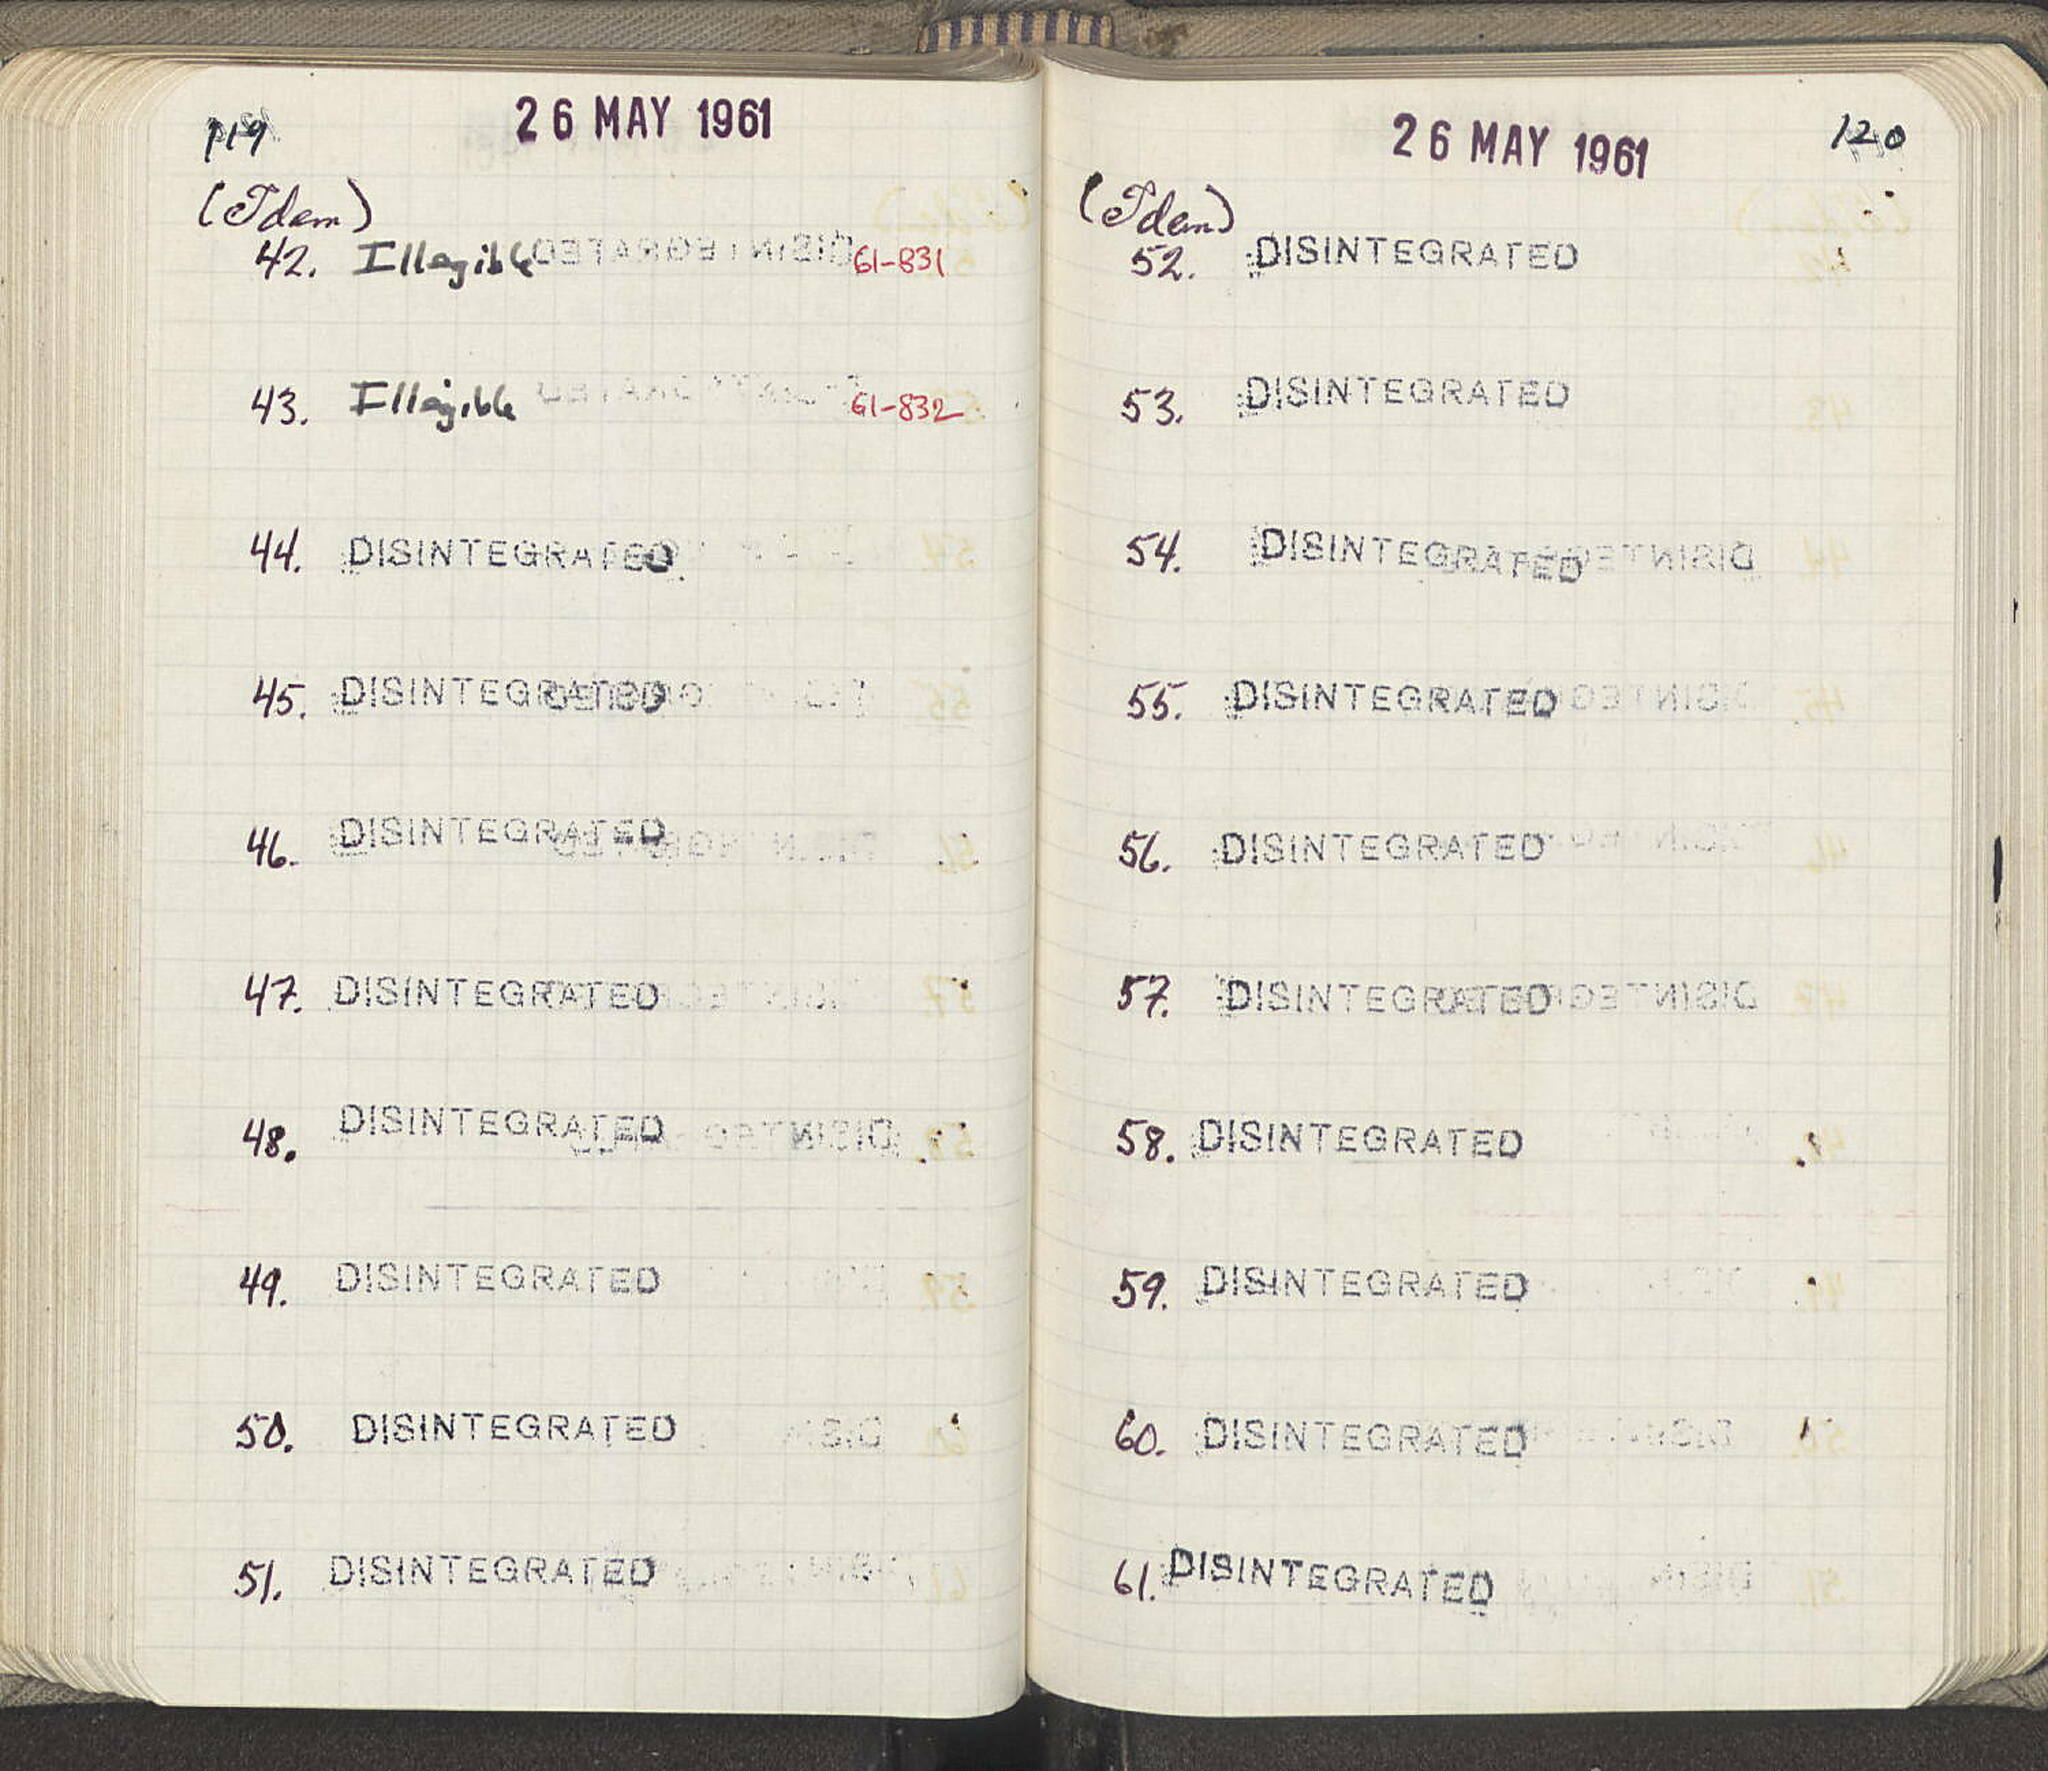 119
26 MAY 1961
(Idem)
42. Illegible 61-831
43. Illegible 61-832
44. DISINTEGRATED
45. DISINTEGRATED
46. DISINTEGRATED
47. DISINTEGRATED
48. DISINTEGRATED
49. DISINTEGRATED
50. DISINTEGRATED
51. DISINTEGRATED
26 MAY 1961
120
(Idem)
52. DISINTEGRATED
53. DISINTEGRATED
54. DISINTEGRATED
55. DISINTEGRATED
56. DISINTEGRATED
57. DISINTEGRATED
58. DISINTEGRATED
59. DISINTEGRATED
60. DISINTEGRATED
61. DISINTEGRATED